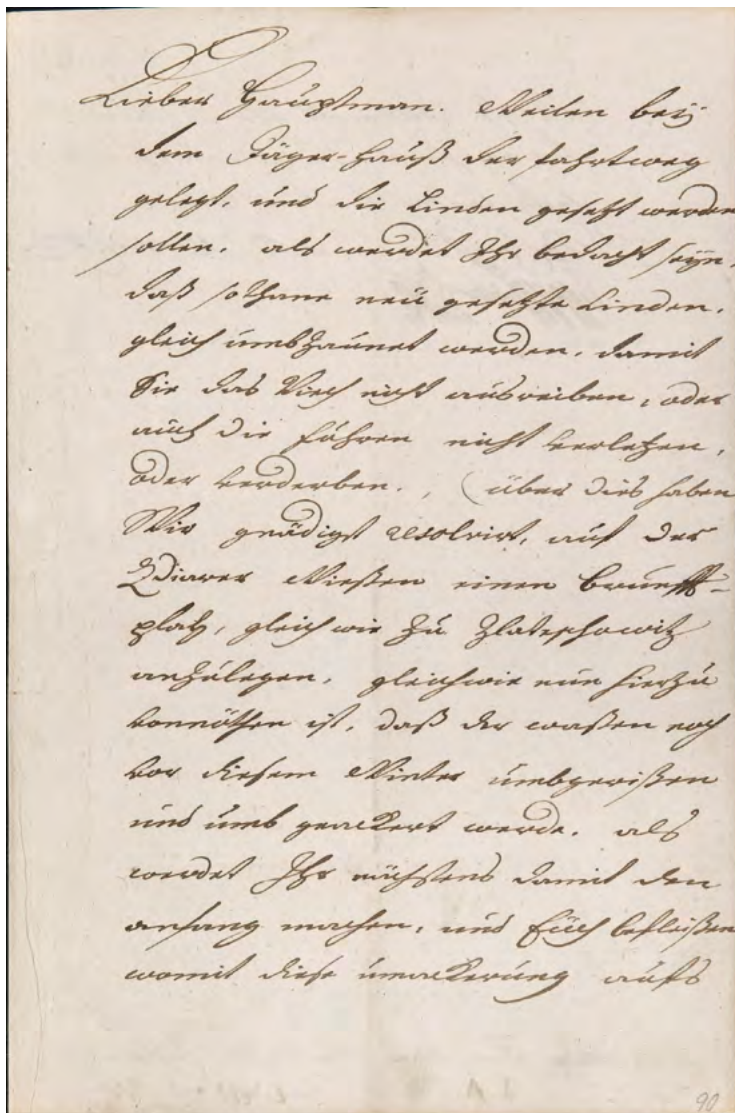 Lieber Hauptman. Weilen beÿ
dem Jäger-Hauß der fahrtweeg
gelegt, und die Linden gesetzt werden
sollen, als werdet Ihr bedacht seÿn,
daß sothane neü gesetzte Linden,
gleich umbzaünet werden, damit
Sie das Viech nicht ausreiben, oder
auch die führen nicht verletzen,
oder verderben., (über dies haben
Wir gnädigst resolvirt, auf der
Wießen einen
platz, gleich wie zu Zlateschowitz
anzulegen, gleichwie nun hierzu
vonnöthen ist, daß der waßen noch
vor diesem Winter umbgerißen
und umb geackert werde, als
werdet Ihr nächstens damit den
anfang machen, und Eüch befleißen
womit diese umackerung aufs
90